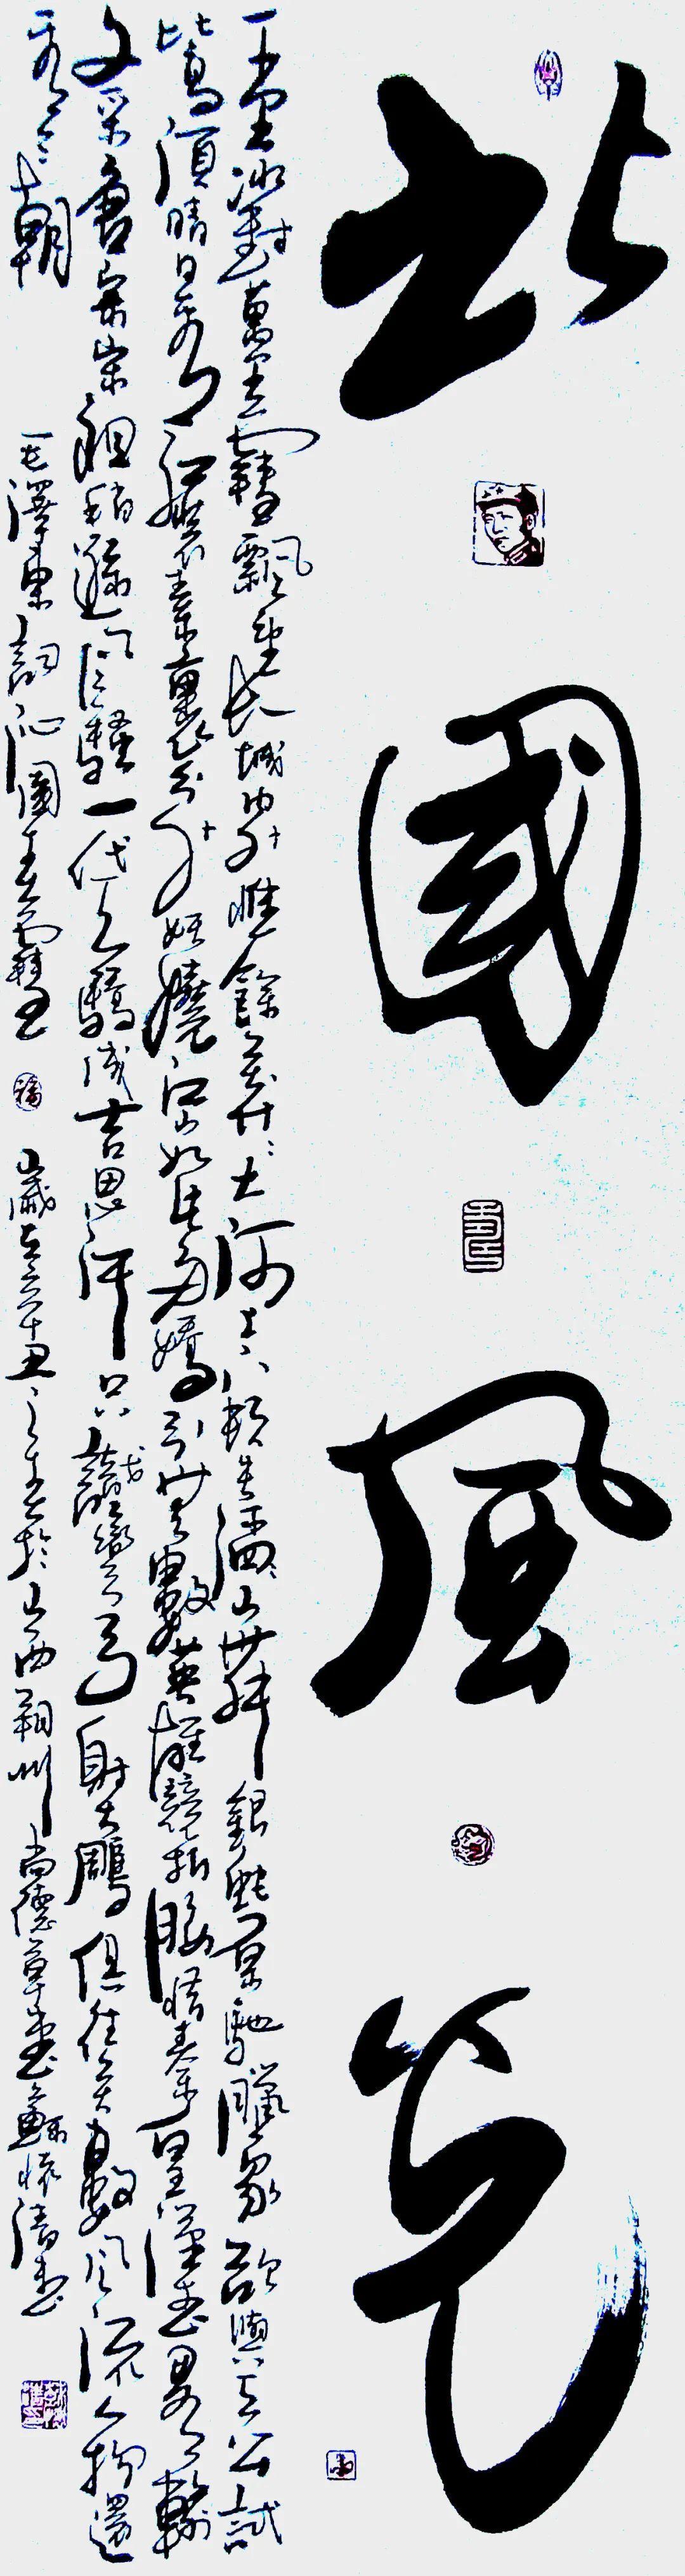 北國風光
千里冰封萬里雪飄望長城内外惟餘莽莽大河上下頓失滔滔山舞銀蛇原馳臘象欲與天公試
比高須晴日看紅裝素裹分外妖嬈江山如此多嬌引無數英雄競折腰惜秦皇漢武略輸
文采唐宗宋祖稍遜風騷一代天驕成吉思汗只識彎弓射大鵰俱往矣數風流人物還
看今朝
毛澤東詞沁園春雪
福
歲在辛丑之春於山西朔州尚德草堂蘇懷清書